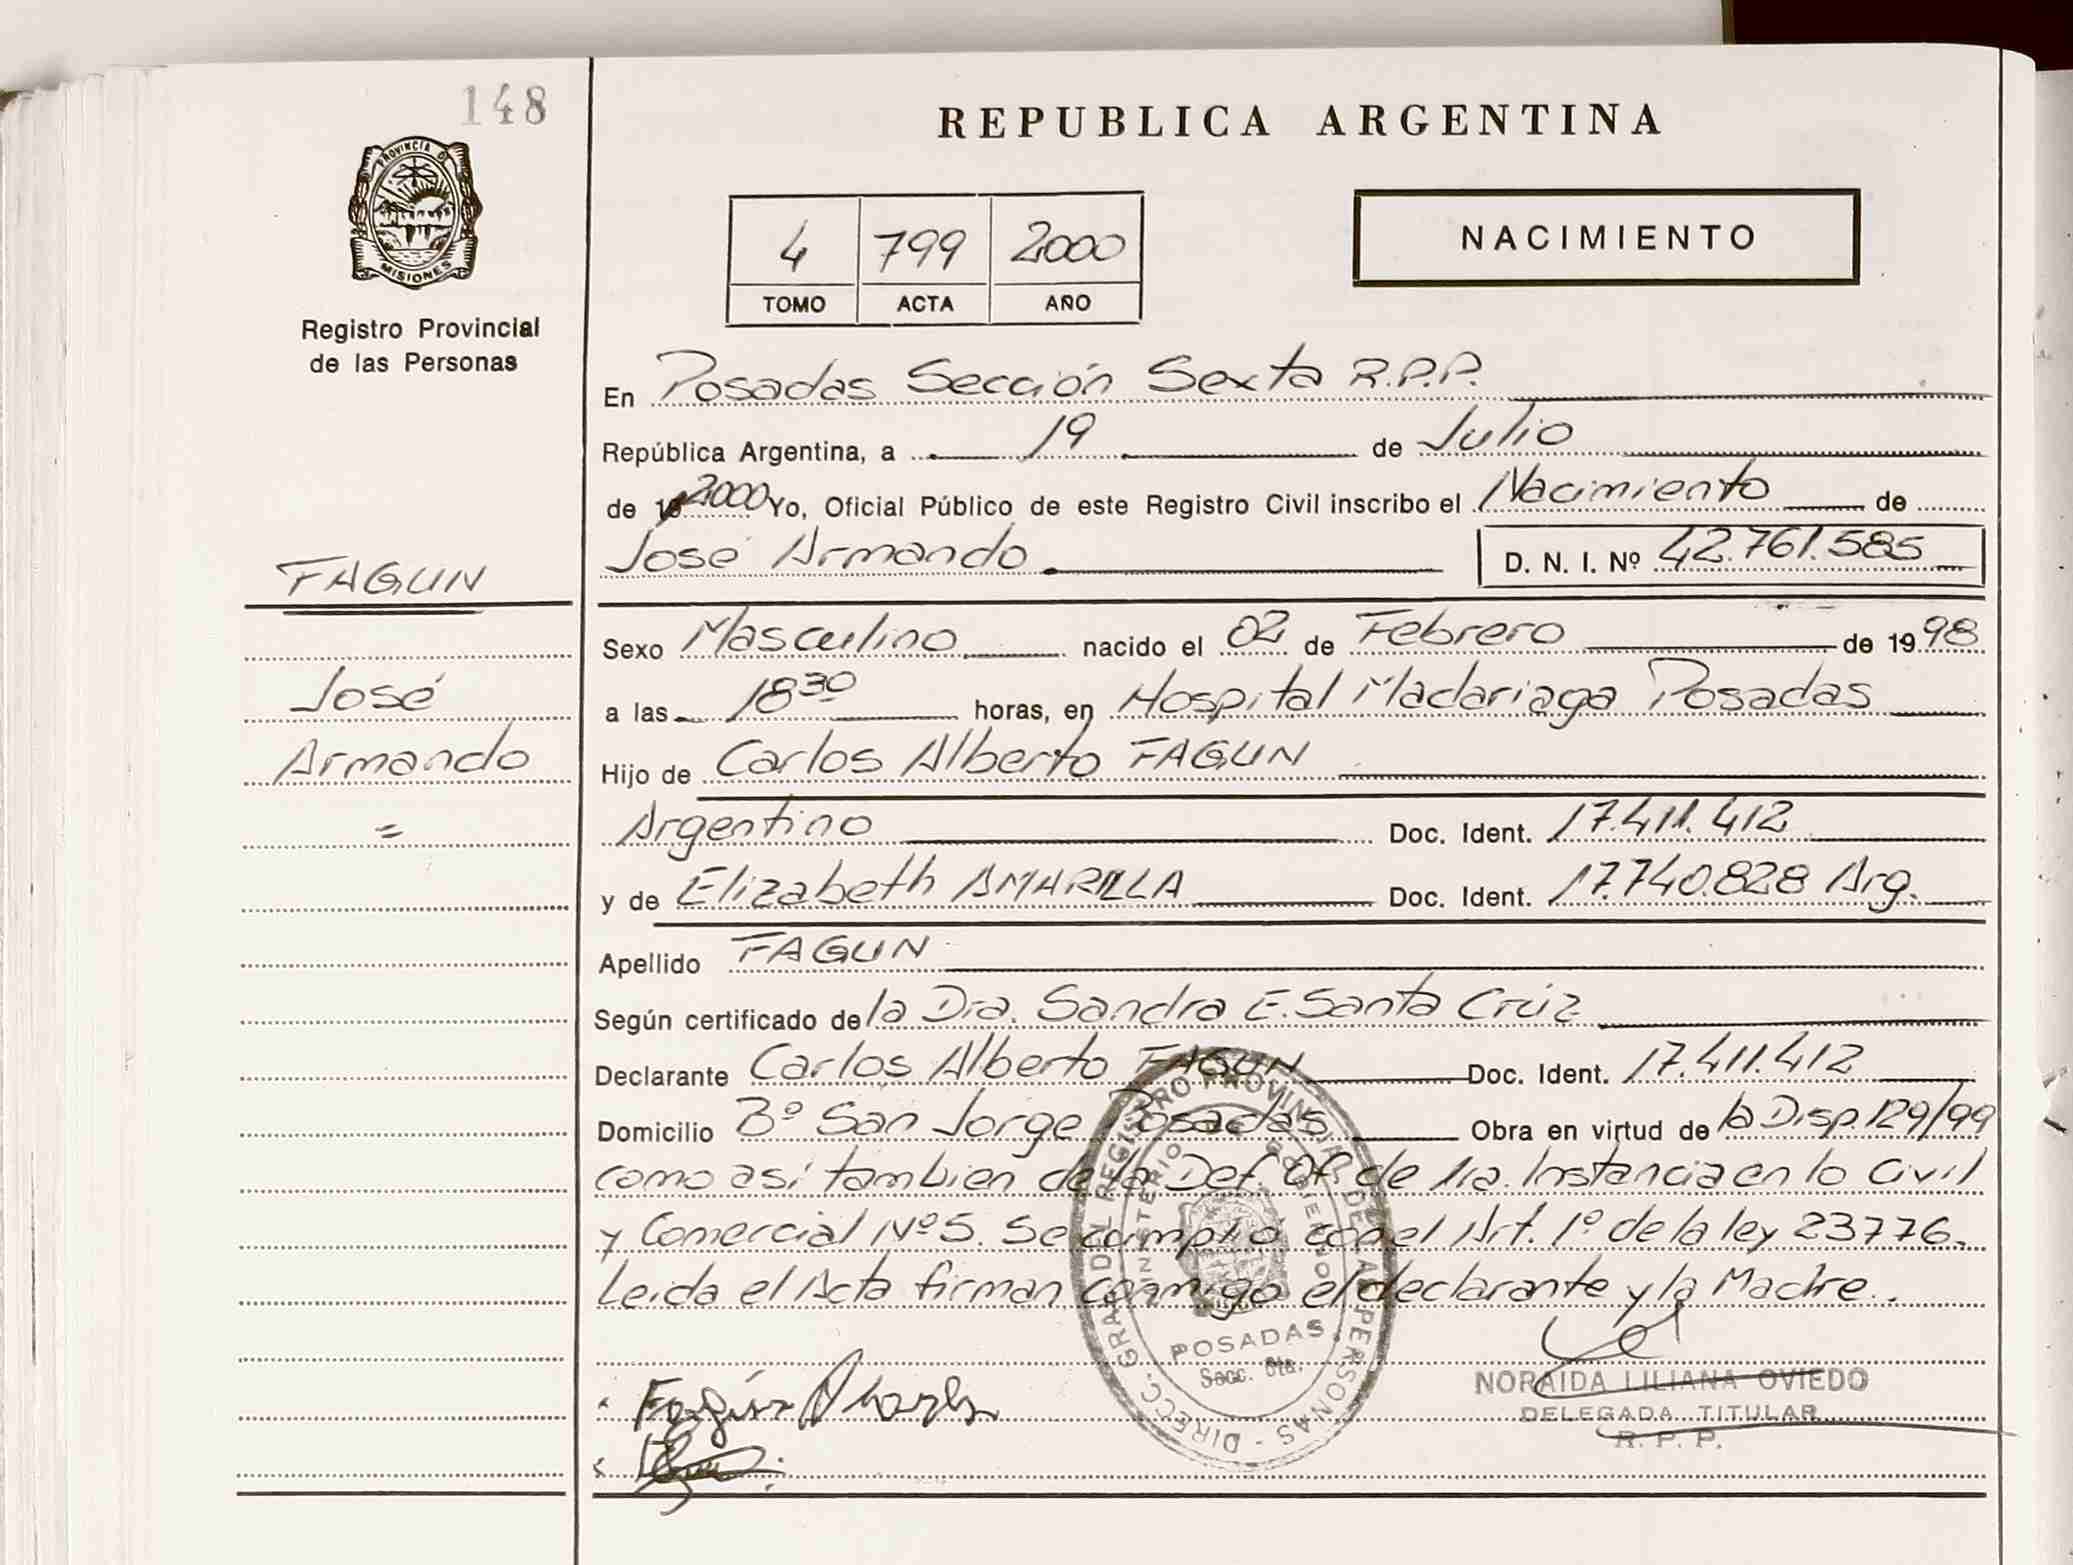 148
PROVINCIA DE
MISIONES
Registro Provincial
de las Personas
REPUBLICA ARGENTINA
4 799 2000
TOMO ACTA AÑO
NACIMIENTO
En Posadas Sección Sexta R.P.P.
República Argentina, a 19 de Julio
de 2000 Yo, Oficial Público de este Registro Civil inscribo el Nacimiento de
José Armando D. N. I. Nº 42.761.585
FAGUN
José
Armando
=
Sexo Masculino nacido el 02 de Febrero de 1998
a las 18 30 horas, en Hospital Madariaga Posadas
Hijo de Carlos Alberto FAGUN
Argentino Doc. Ident. 17.411.412
y de Elizabeth AMARILLA Doc. Ident. 17.740.828 Arg.
Apellido FAGUN
Según certificado de la Dra. Sandra E. Santa Crúz
Declarante Carlos Alberto FAGUN Doc. Ident. 17.411.412
Domicilio Bº San Jorge Posadas Obra en virtud de la Disp. 129/99
como asi tambien de la Def. Of. de 1ra. Instancia en lo Civil
y Comercial Nº 5. Se cumplió con el Art. 1º de la ley 23776.
Leida el Acta firman conmigo el declarante y la Madre.
DIRECC. GRAL DEL REGISTRO PROVINCIAL DE LAS PERSONAS
MINISTERIO DE GOBIERNO
POSADAS
Secc. 6ta.
NORAIDA LILIANA OVIEDO
DELEGADA TITULAR
R. P. P.